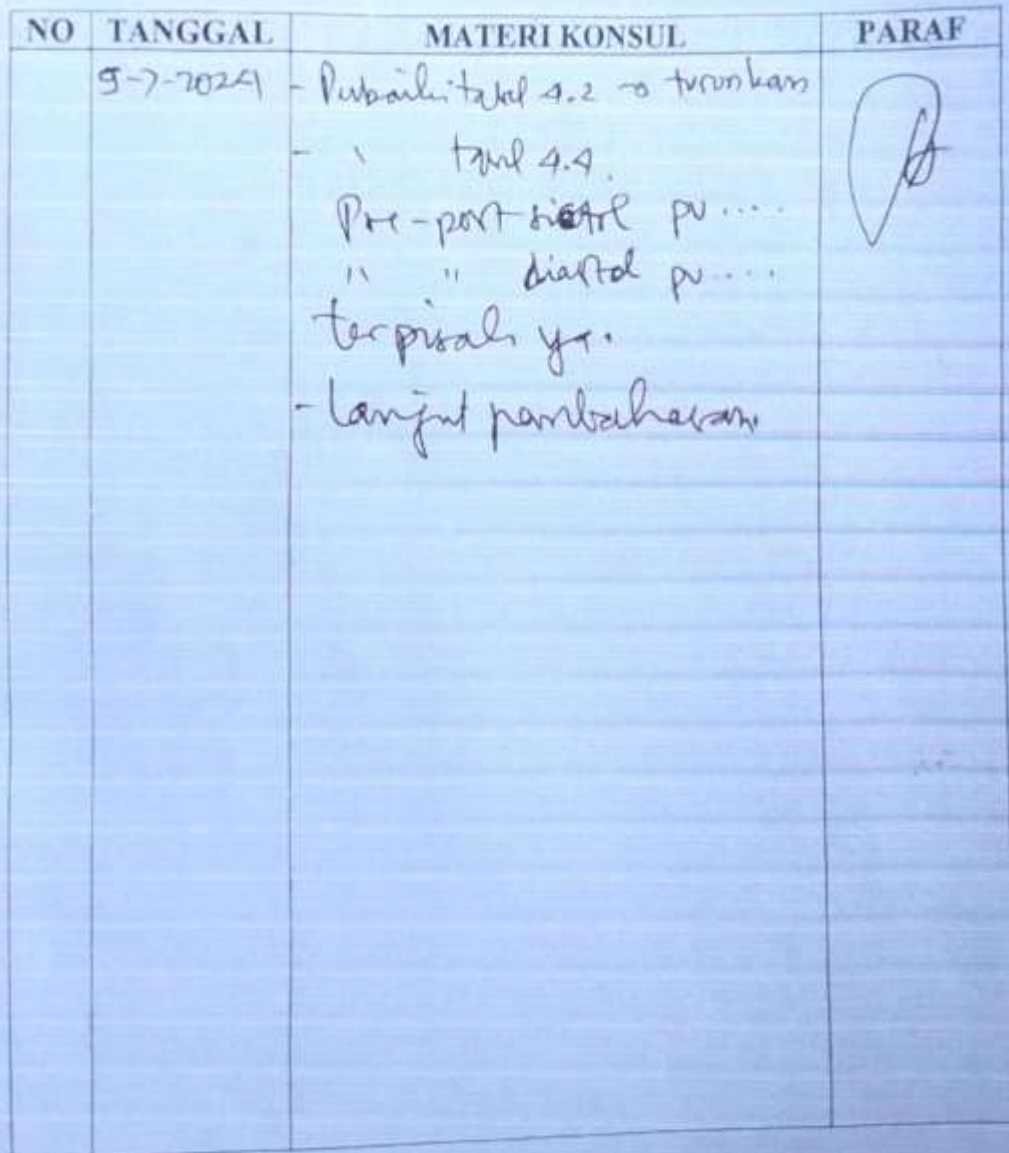 NO TANGGAL MATERI KONSUL PARAF
9-7-2024 - Perbaiki tabel 4.2 → turunkan
- " tabel 4.4.
Pre-post sistol pv ....
" " diastol pv ....
terpisah ya.
- Lanjut pembahasan.